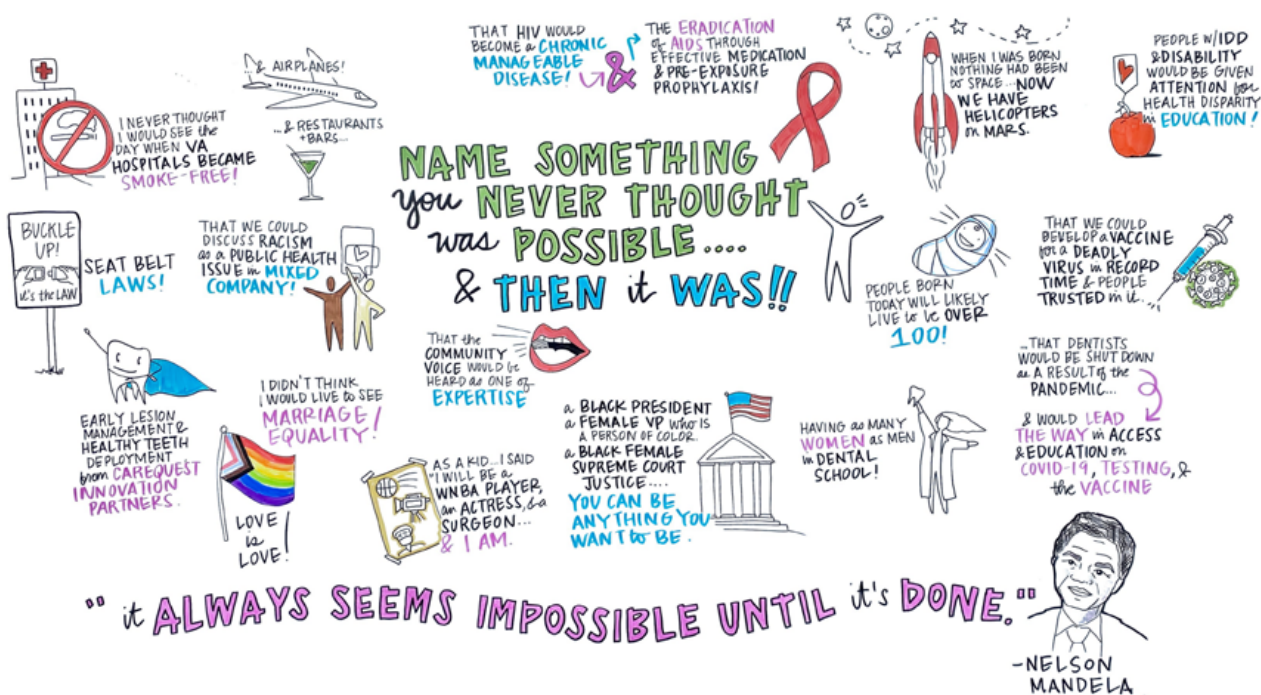 NAME SOMETHING
you NEVER THOUGHT
was POSSIBLE....
& THEN it WAS!!
I NEVER THOUGHT
I WOULD SEE the
DAY WHEN VA
HOSPITALS BECAME
SMOKE-FREE!
...& AIRPLANES!
...& RESTAURANTS
+ BARS...
THAT HIV WOULD
BECOME a CHRONIC
MANAGEABLE
DISEASE!
&
THE ERADICATION
of AIDS THROUGH
EFFECTIVE MEDICATION
& PRE-EXPOSURE
PROPHYLAXIS!
WHEN I WAS BORN
NOTHING HAD BEEN
to SPACE...NOW
WE HAVE
HELICOPTERS
on MARS.
PEOPLE W/IDD
& DISABILITY
WOULD BE GIVEN
ATTENTION for
HEALTH DISPARITY
in EDUCATION!
BUCKLE
UP!
it's the LAW
SEAT BELT
LAWS!
THAT WE COULD
DISCUSS RACISM
as a PUBLIC HEALTH
ISSUE in MIXED
COMPANY!
PEOPLE BORN
TODAY WILL LIKELY
LIVE to be OVER
100!
THAT WE COULD
DEVELOP a VACCINE
for a DEADLY
VIRUS in RECORD
TIME & PEOPLE
TRUSTED in it...
EARLY LESION
MANAGEMENT &
HEALTHY TEETH
DEPLOYMENT
from CAREQUEST
INNOVATION
PARTNERS.
I DIDN'T THINK
I WOULD LIVE to SEE
MARRIAGE
EQUALITY!
LOVE
is
LOVE!
THAT the
COMMUNITY
VOICE WOULD be
HEARD as ONE of
EXPERTISE
AS A KID...I SAID
"I WILL BE a
WNBA PLAYER,
an ACTRESS, & a
SURGEON...
& I AM.
a BLACK PRESIDENT
a FEMALE VP who IS
A PERSON OF COLOR.
a BLACK FEMALE
SUPREME COURT
JUSTICE....
YOU CAN BE
ANYTHING YOU
WANT to BE.
HAVING as MANY
WOMEN as MEN
in DENTAL
SCHOOL!
...THAT DENTISTS
WOULD BE SHUT DOWN
as A RESULT of the
PANDEMIC...
& WOULD LEAD
THE WAY in ACCESS
& EDUCATION on
COVID-19, TESTING, &
the VACCINE
"it ALWAYS SEEMS IMPOSSIBLE UNTIL it's DONE."
-NELSON
MANDELA